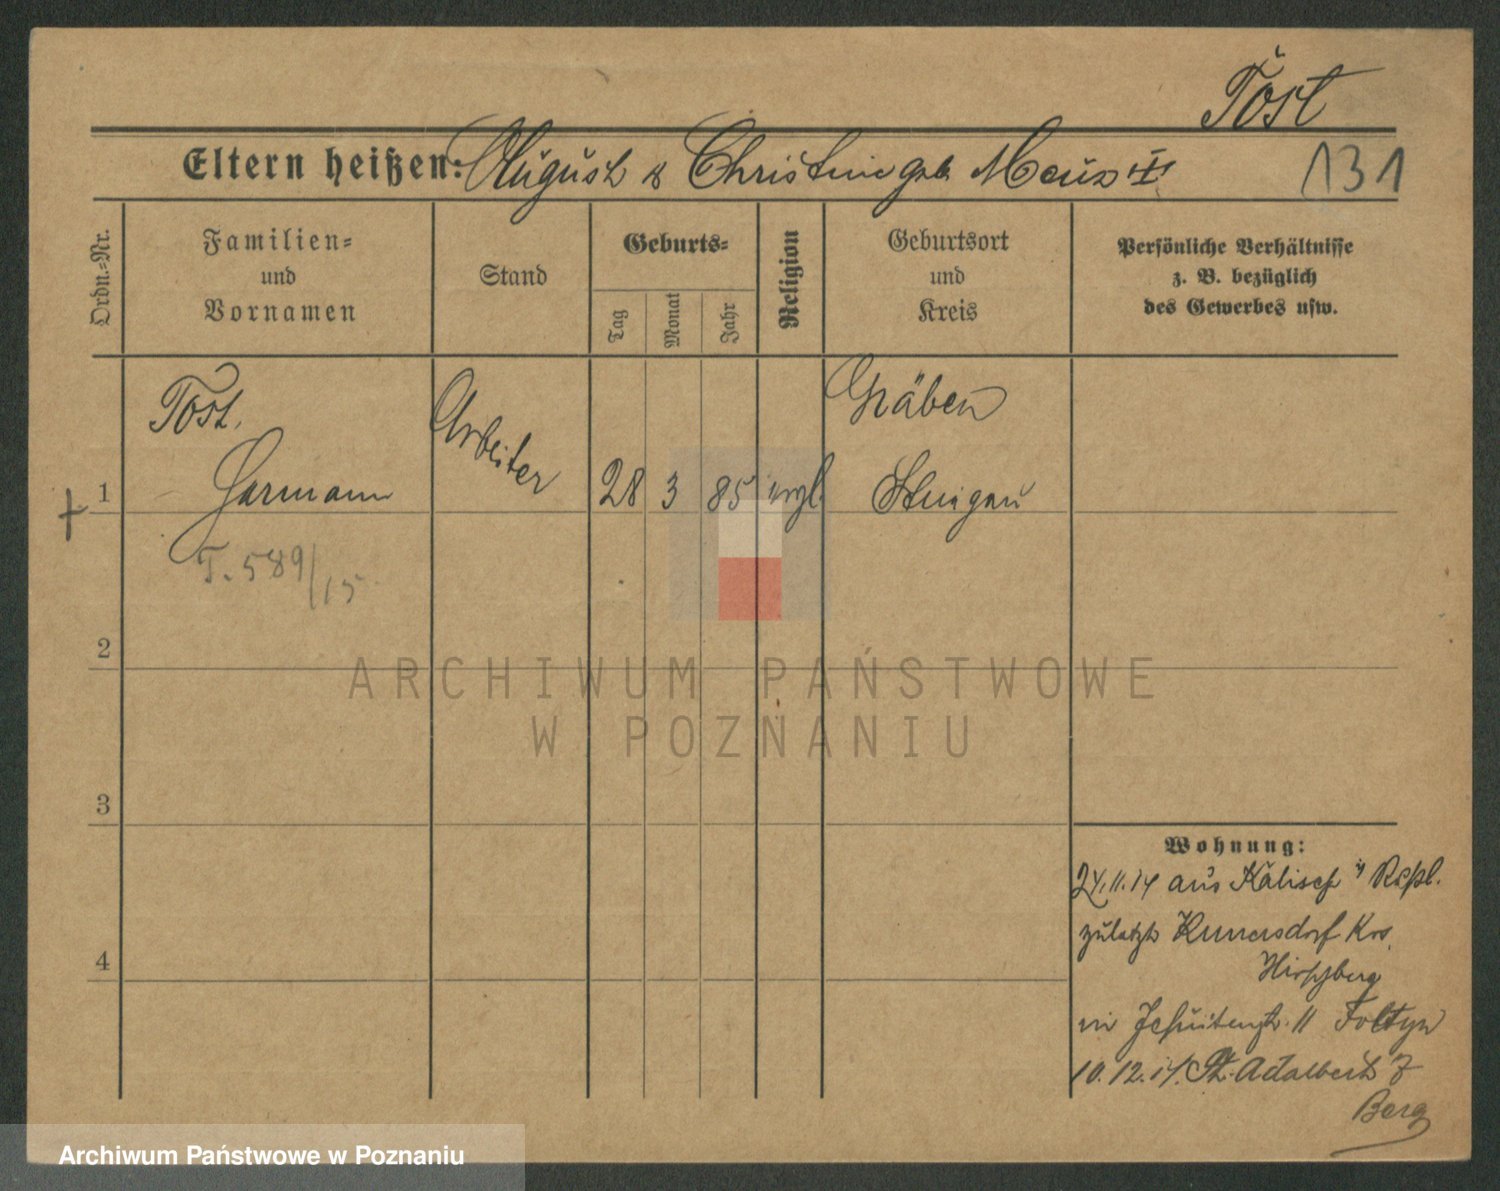 Tost
Eltern heißen: August & Christine geb. Meus
131
Ordn.-Nr.
Familien-
und
Vornamen
Stand
Geburts-
Tag
Monat
Jahr
Religion
Geburtsort
und
Kreis
Persönliche Verhältnisse
z. B. bezüglich
des Gewerbes usw.
Tost,
Hermann
Arbeiter
1
28 3 85 evgl.
Gräben
Striegau
T. 589/15
2
3
4
Wohnung:
24.11.14 aus Kalisch
zuletzt Kunersdorf Krs.
Hirschberg
in Jesuitenstr. 11 Foltyn
10.12.14 St. Adalbert 7
Berg
ARCHIWUM PAŃSTWOWE
W POZNANIU
Archiwum Państwowe w Poznaniu